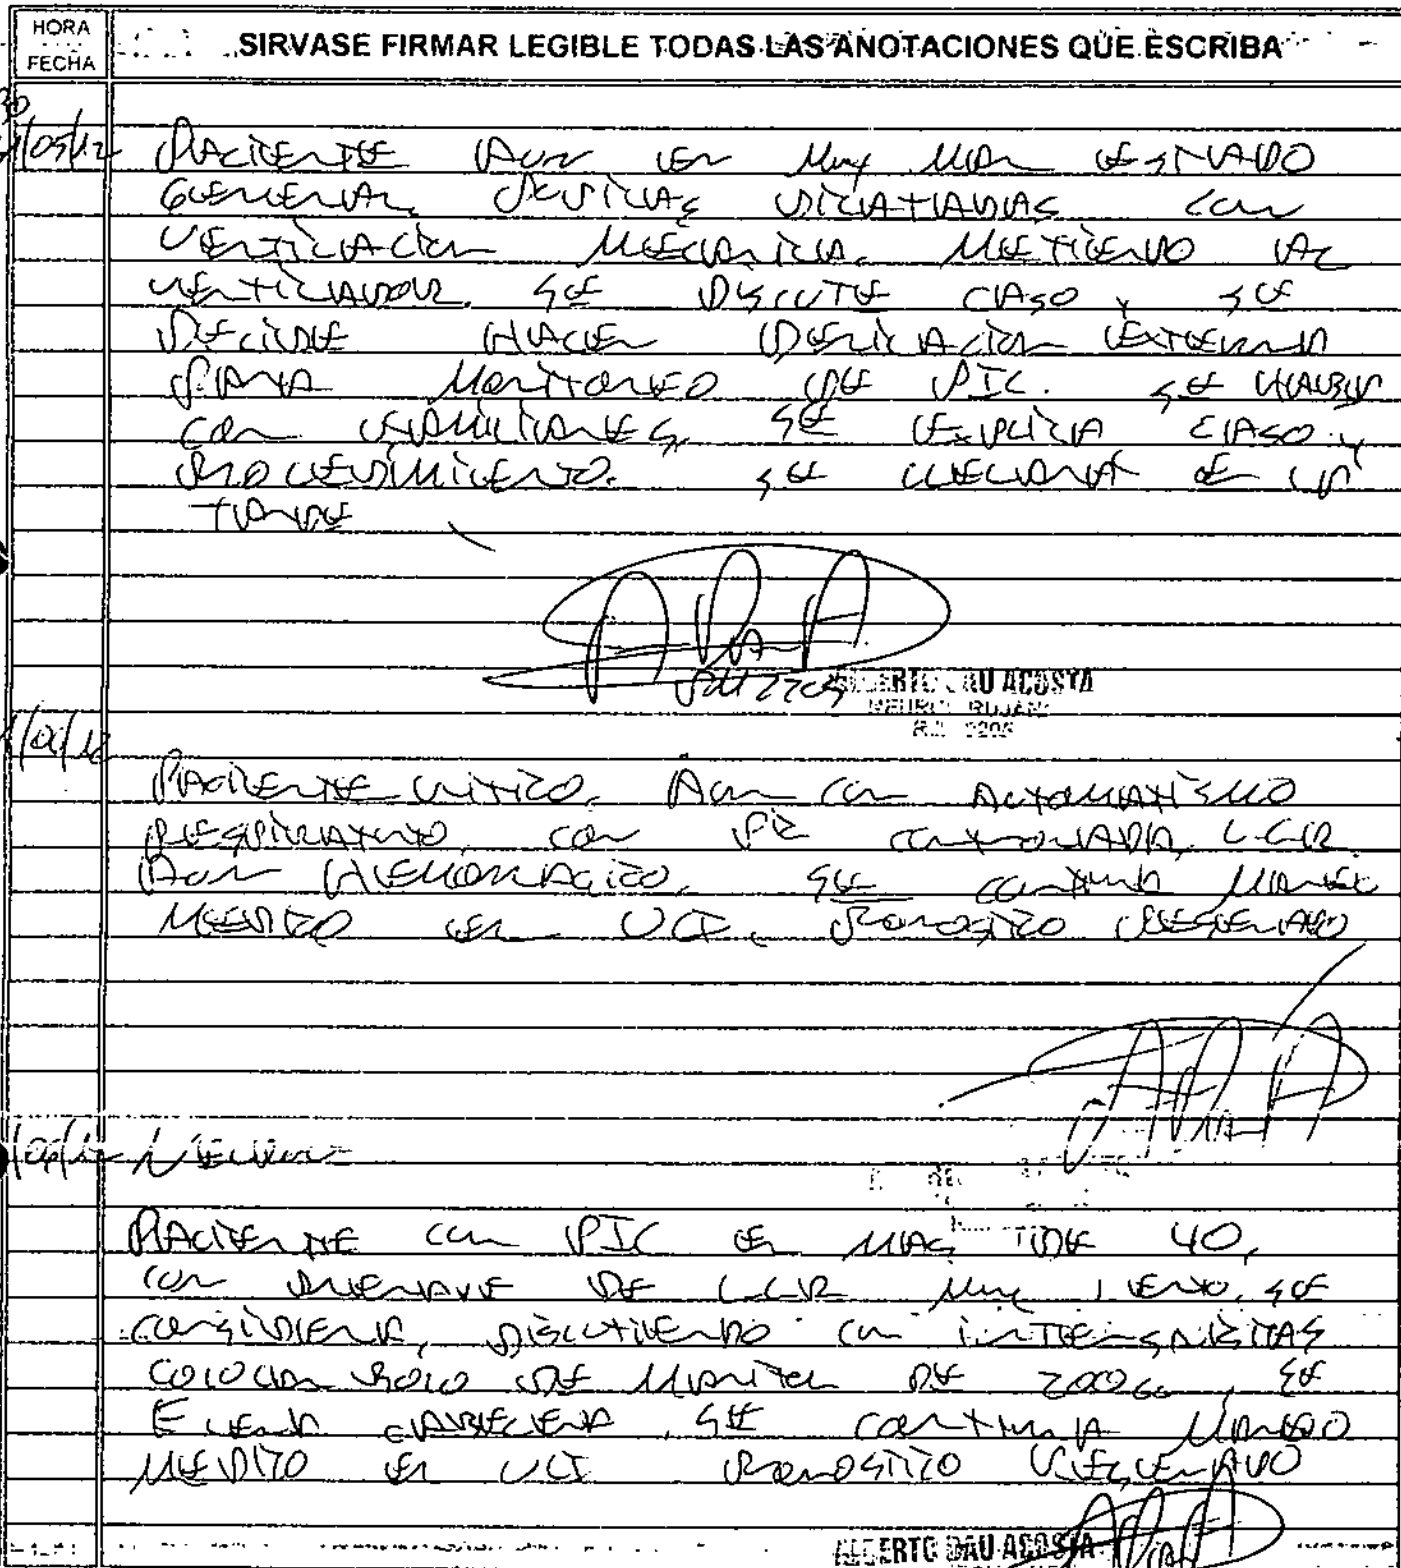 HORA
FECHA
SIRVASE FIRMAR LEGIBLE TODAS LAS ANOTACIONES QUE ESCRIBA
30
/05/12
PACIENTE AUN EN MUY MAL ESTADO
GENERAL, PUPILAS DILATADAS CON
VENTILACION MECANICA. METIENDO AL
VENTILADOR. SE DISCUTE CASO Y SE
DECIDE HACER DERIVACION EXTERNA
PARA MONITOREO DE PIC. SE HABLA
CON FAMILIARES, SE EXPLICA CASO Y
PROCEDIMIENTO. SE LLEVARA EN LA
TARDE
ALBERTO DAU ACOSTA
PACIENTE CRITICO. AUN CON AUTOMATISMO
RESPIRATORIO, CON PIC CONTROLADA, LCR
AUN HEMORRAGICO. SE CONTINUA MANEJO
MEDICO EN UCI. PRONOSTICO RESERVADO
PACIENTE CON PIC EN MAS DE 40,
CON DRENAJE DE LCR MUY LENTO, SE
CONSIDERA, DISCUTIENDO CON INTENSIVISTAS
COLOCAR BOLO DE MANITOL DE 200CC, SE
ELEVA CABECERA, SE CONTINUA MANEJO
MEDICO EN UCI PRONOSTICO RESERVADO
ALBERTO DAU ACOSTA